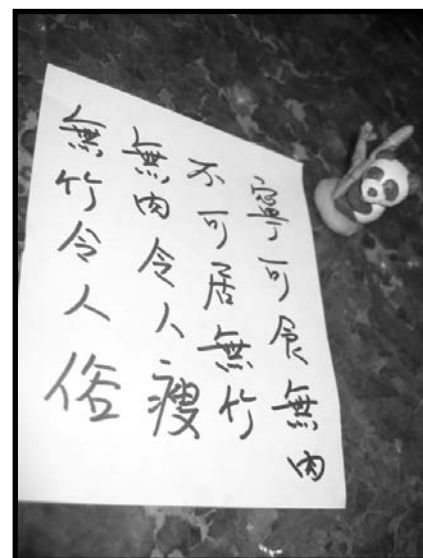 寧可食無肉
不可居無竹
無肉令人瘦
無竹令人俗